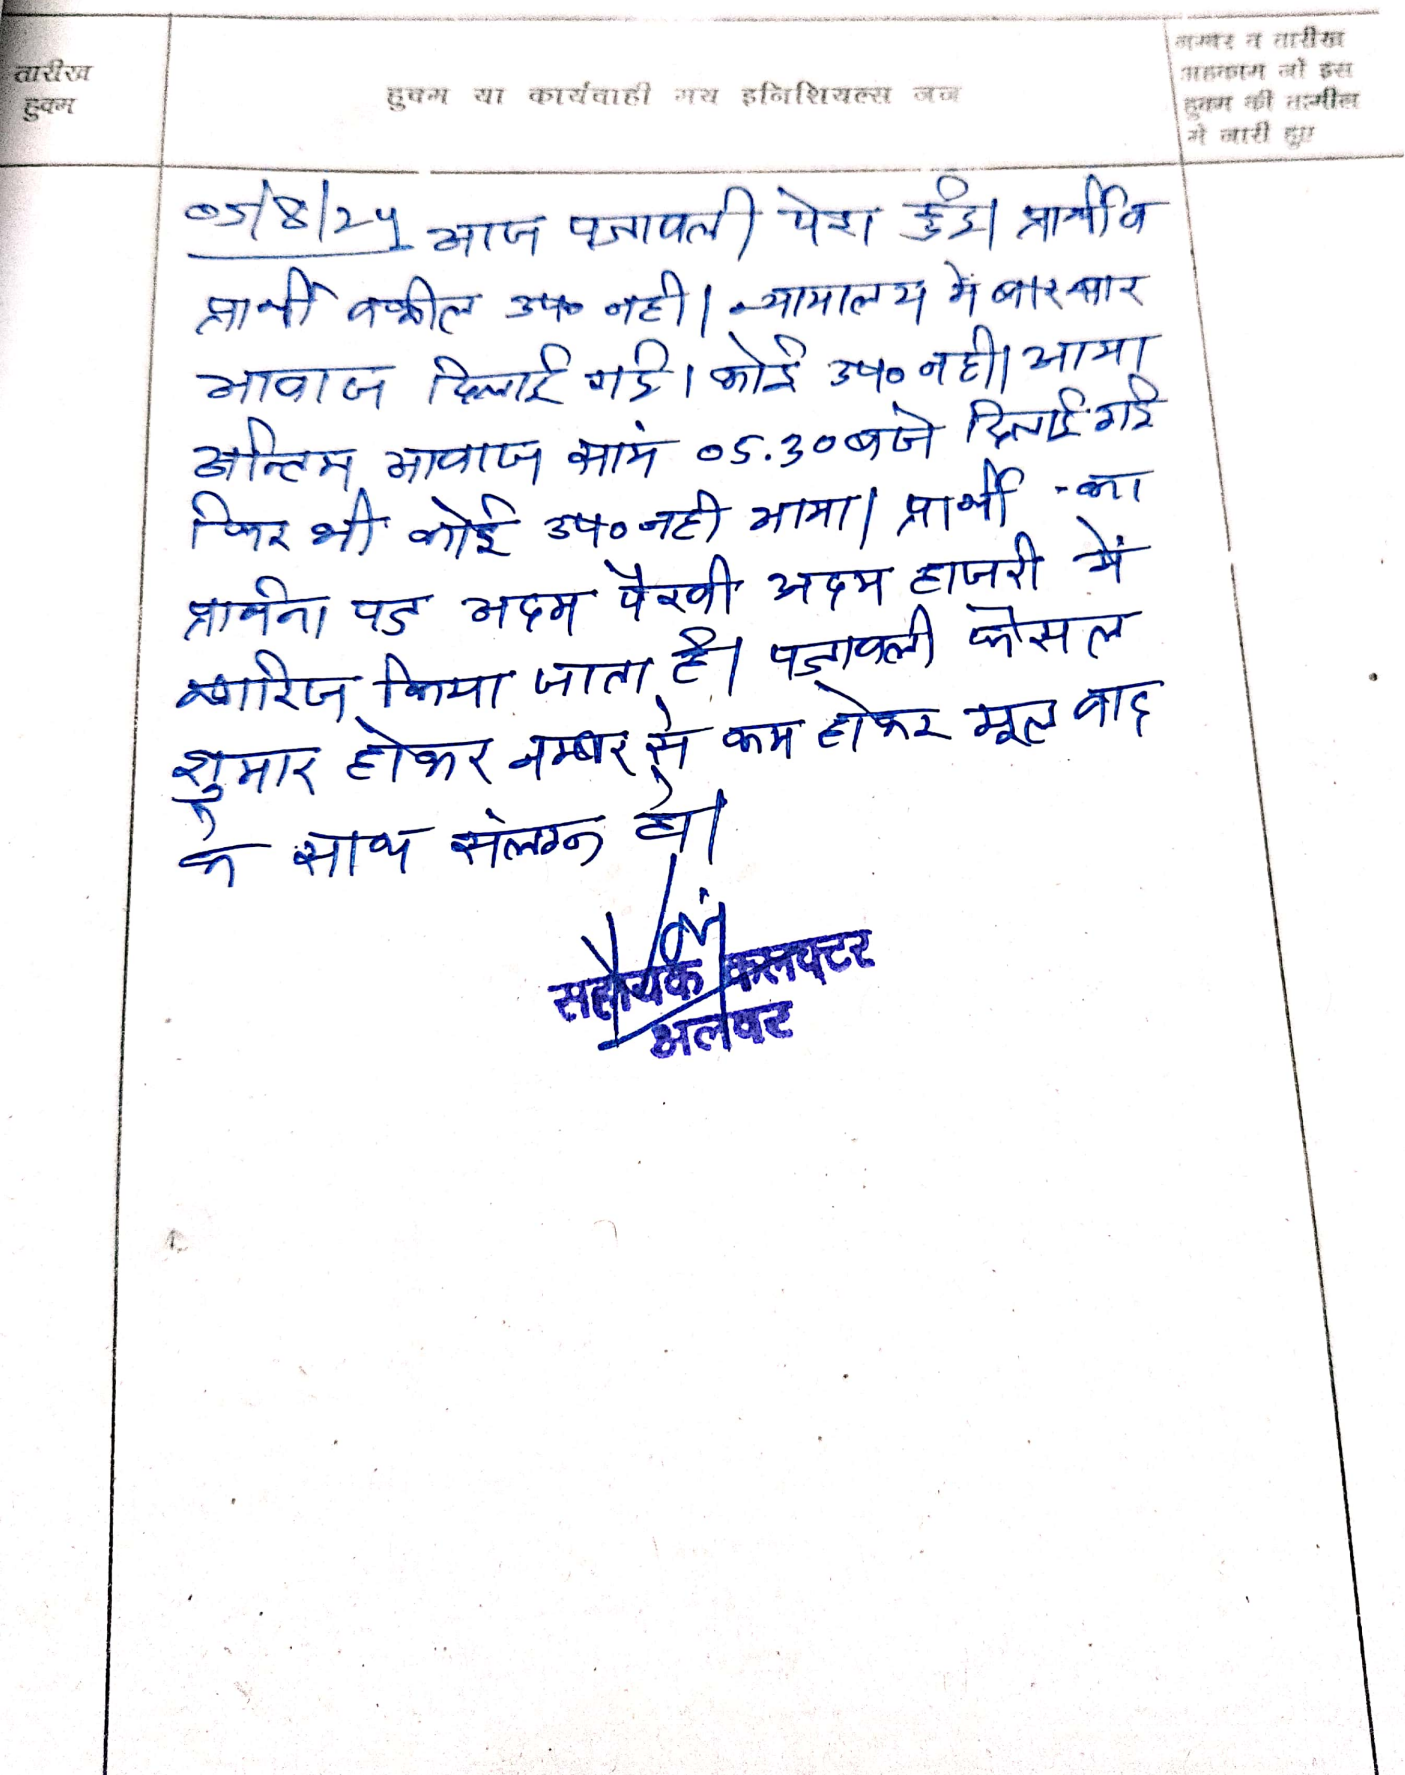 तारीख
हुक्म
हुक्म या कार्यवाही मय इनिशियल्स जज
नम्बर व तारीख
अहकाम जो इस
हुक्म की तामील
में जारी हुए
05/8/24 आज पत्रावली पेश हुई। प्रार्थी व
प्रार्थी वकील उप० नही। न्यायालय में बार बार
आवाज दिलाई गई। कोई उप० नही। आया
अन्तिम आवाज सायं 05.30 बजे दिलाई गई
फिर भी कोई उप० नही आया। प्रार्थी का
प्रार्थना पत्र अदम पैरवी अदम हाजरी में
खारिज किया जाता है। पत्रावली फैसल
शुमार होकर नम्बर से कम होकर मूल वाद
के साथ संलग्न हो।
सहायक कलक्टर
अलवर